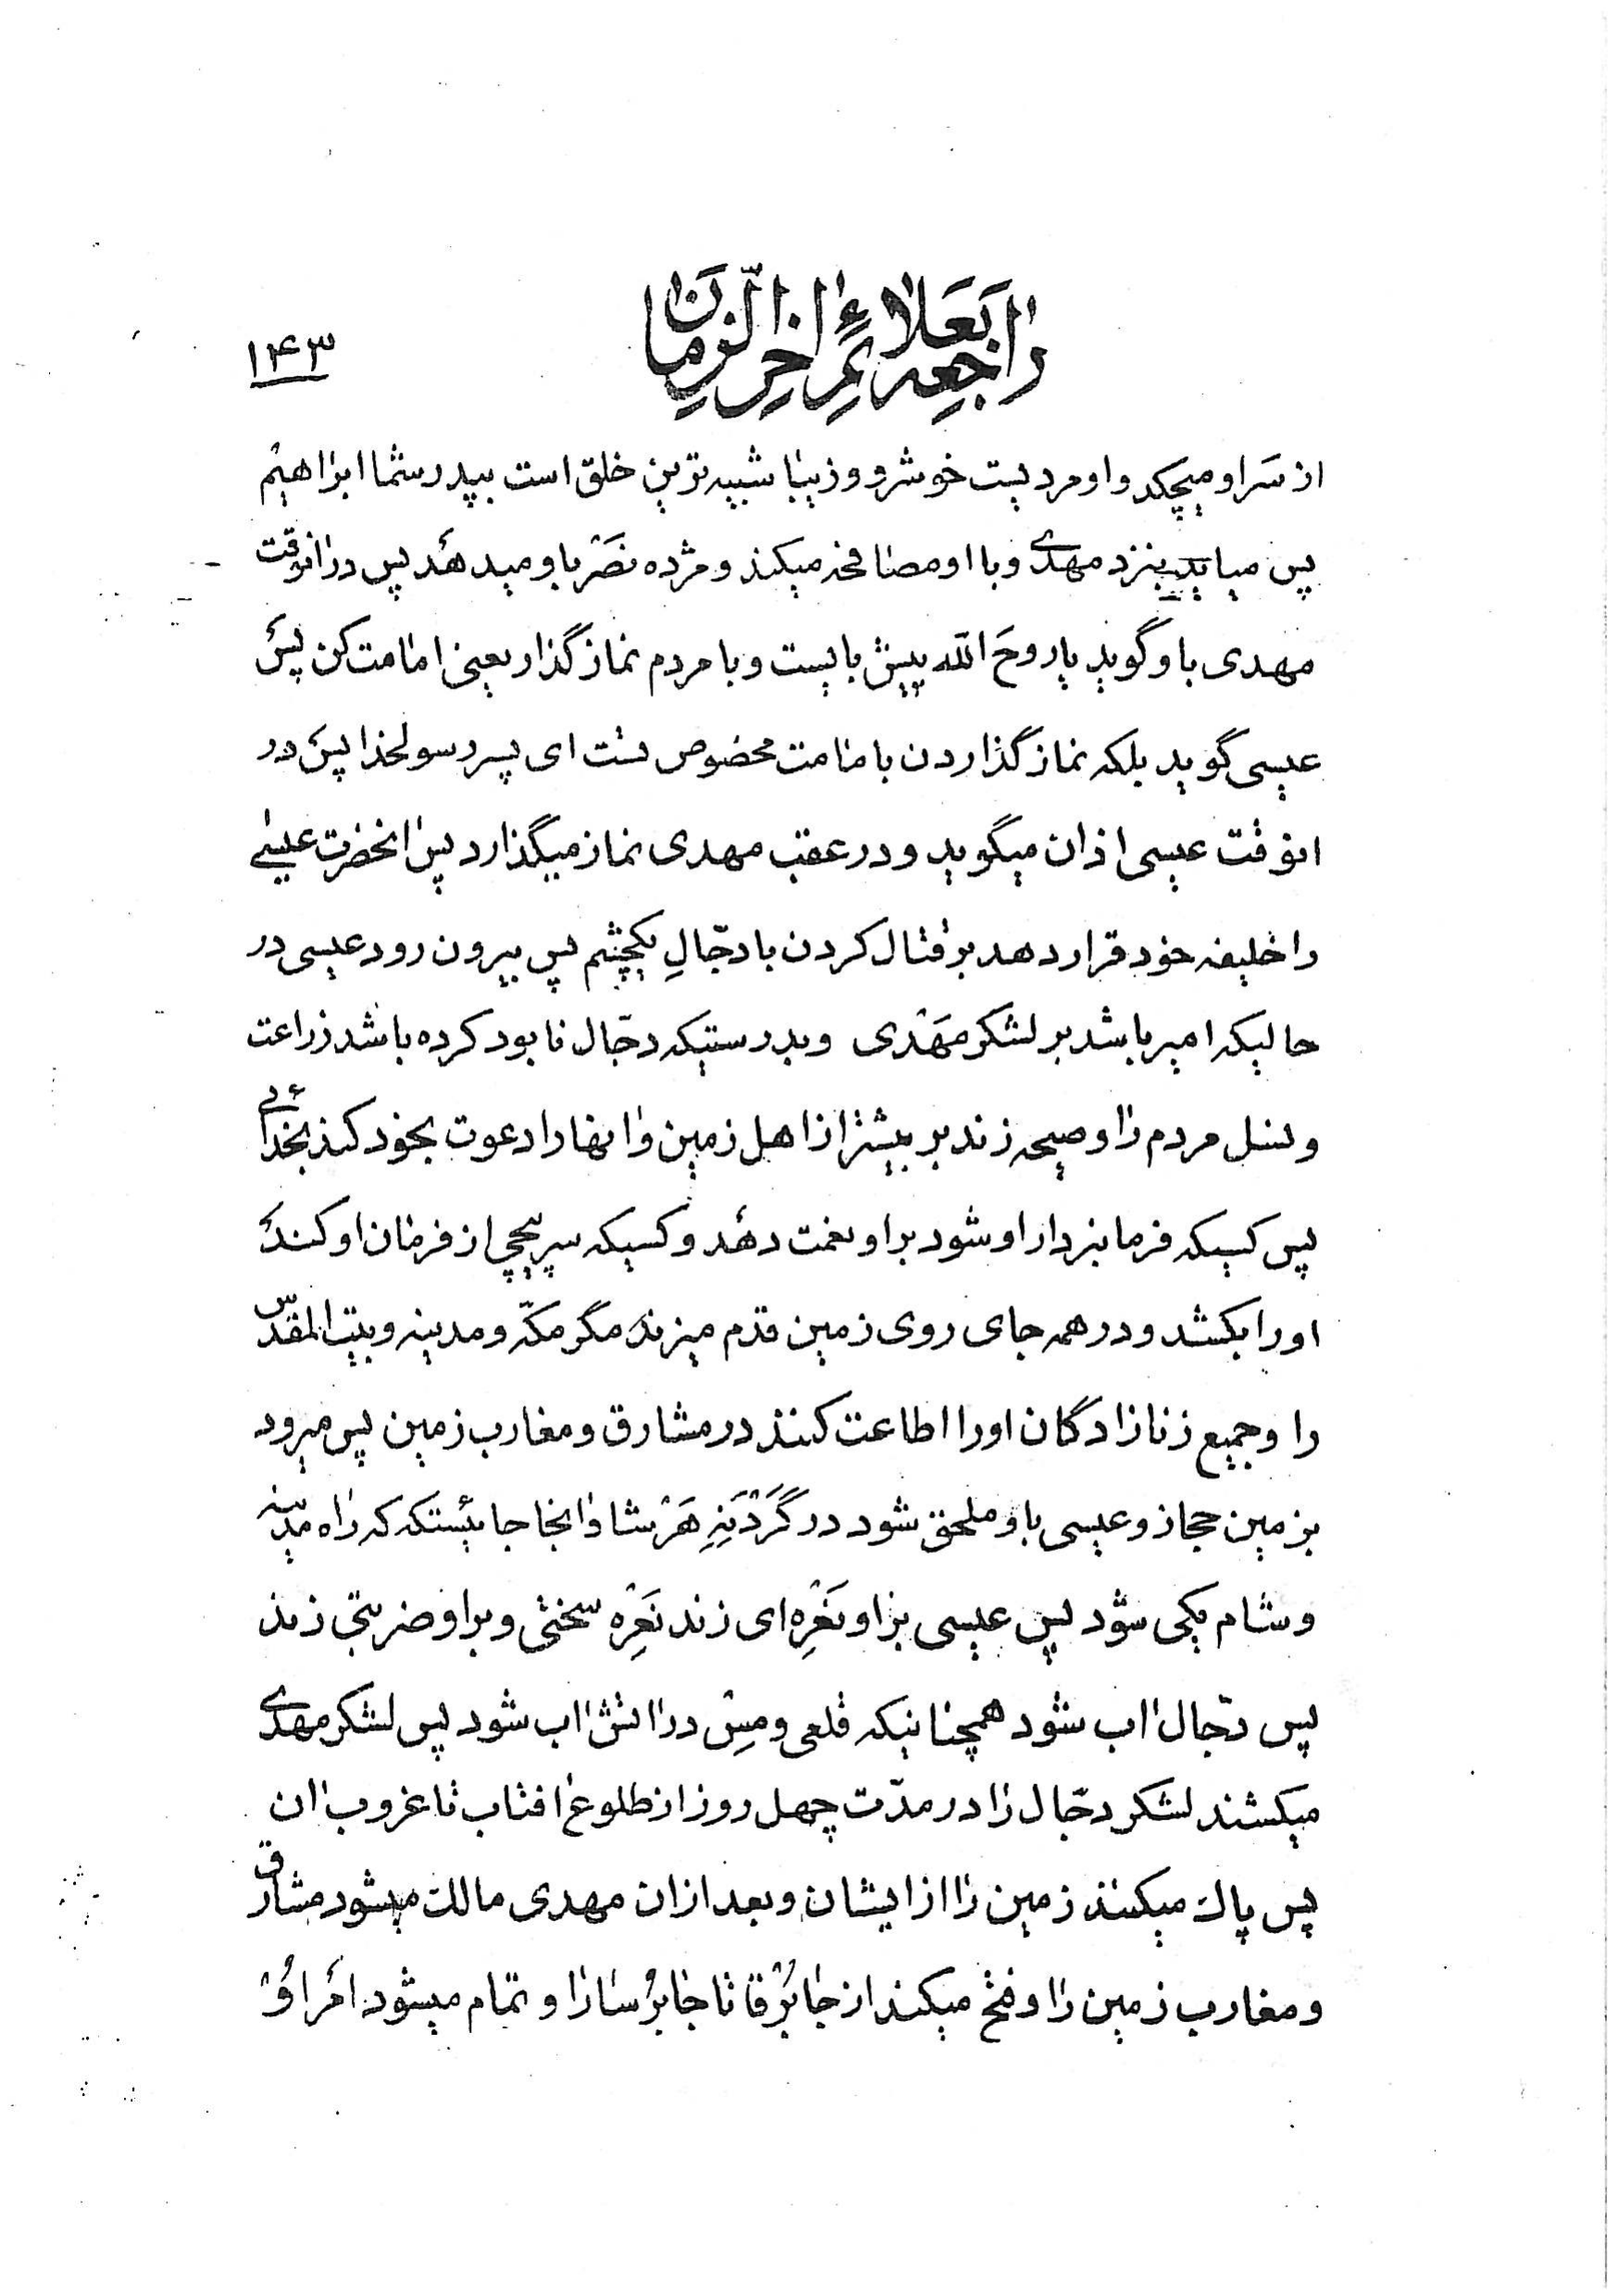 راجعه بعلائم اخر الزمان
۱۴۳
از سر او میچکد و او مردیست خوشرو و زیبا شبیه ترین خلق است بپدر شما ابراهیم
پس میاید بنزد مهدی و با او مصافحه میکند و مژده نصر باو میدهد پس در انوقت
مهدی باو گوید یا روح الله پیش بایست و با مردم نماز گذار یعنی امامت کن پس
عیسی گوید بلکه نماز گذاردن بامامت مخصوص تست ای پسر رسولخدا پس در
انوقت عیسی اذان میگوید و در عقب مهدی نماز میگذارد پس انحضرت عیسی
را خلیفه خود قرار دهد بر قتال کردن با دجّالِ یکچشم پس بیرون رود عیسی در
حالیکه امیر باشد بر لشکر مهدی و بدرستیکه دجّال نابود کرده باشد زراعت
و نسل مردم را و صیحه زند بر بیشتر از اهل زمین و انها را دعوت بخود کند بخدائی
پس کسیکه فرمانبردار او شود بر او نعمت دهد و کسیکه سرپیچی از فرمان او کند
او را بکشد و در همه جای روی زمین قدم میزند مگر مکّه و مدینه و بیت المقدّس
را و جمیع زنازادگان او را اطاعت کنند در مشارق و مغارب زمین پس میرود
بزمین حجاز و عیسی باو ملحق شود در گَرْدَنِهِ هَرْشا و انجا جائیستکه که راه مدینه
و شام یکی شود پس عیسی بر او نَعْرِه ای زند نَعْرِه سختی و بر او ضربتی زند
پس دجّال اب شود همچنانیکه قلعی و مِسْ در اتش اب شود پس لشکر مهدی
میکشند لشکر دجّال را در مدّت چهل روز از طلوع افتاب تا غروب ان
پس پاك میکنند زمین را از ایشان و بعد از ان مهدی مالك میشود مشارق
و مغارب زمین را و فتح میکند از جابُرْقا تا جابُرْسا را و تمام میشود امر او